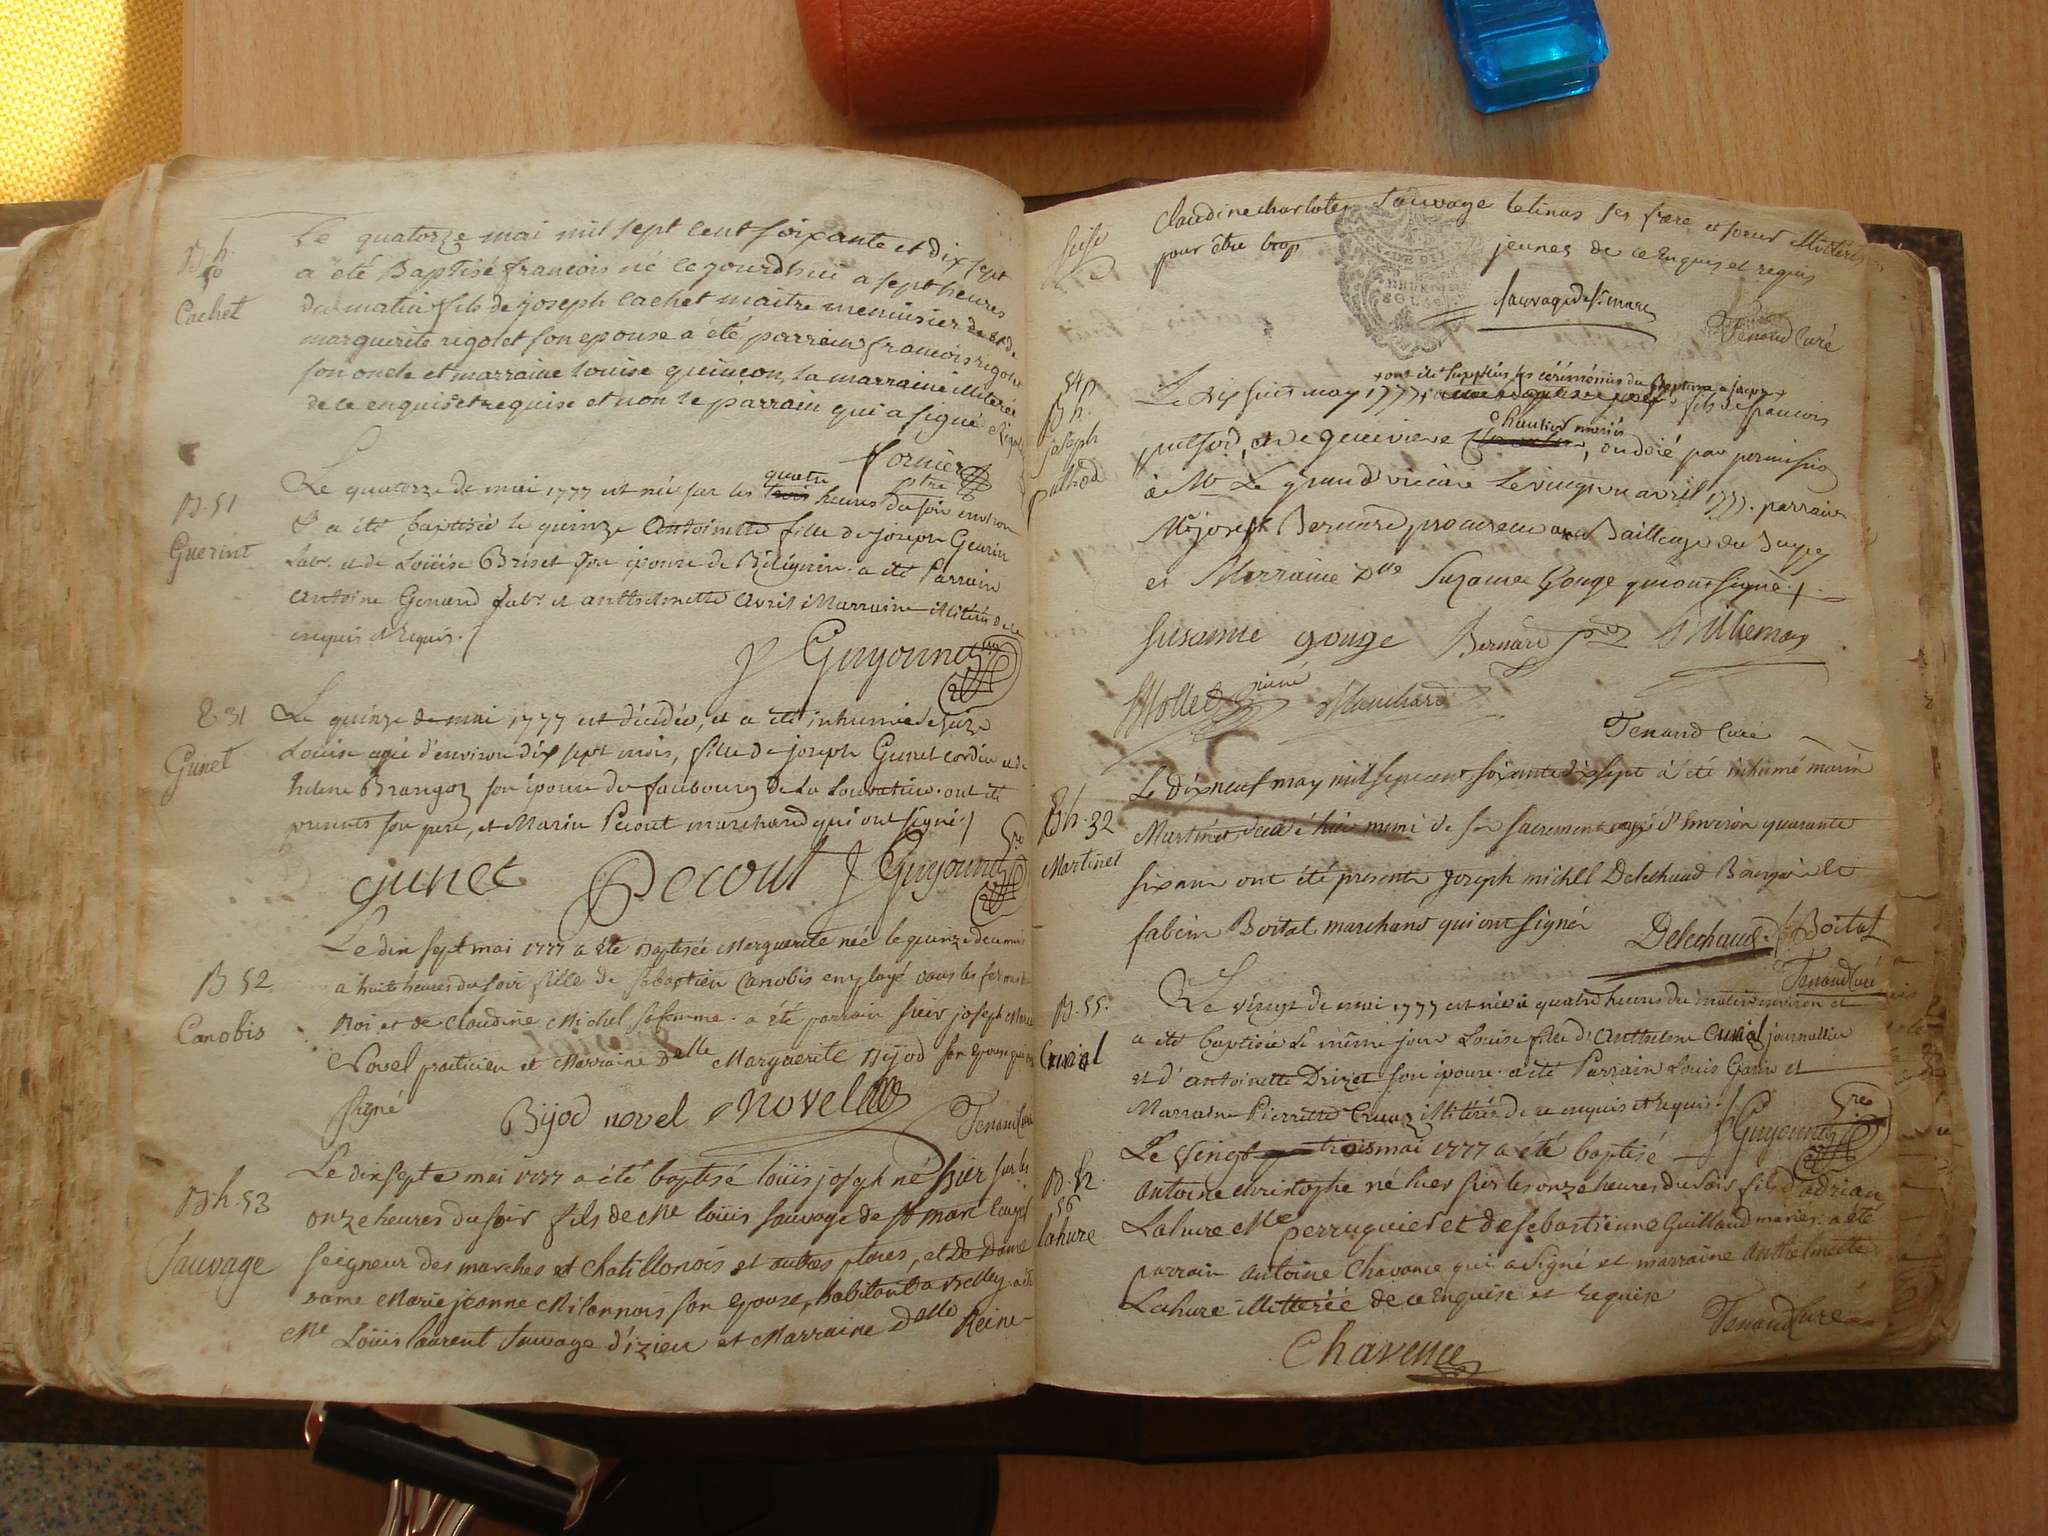 B. h.
50
Cachet
Le quatorze mai mil sept cent soixante et dix sept
a été Baptisé francois né ce jourdhui a sept heures
du matin fils de joseph Cachet maitre menuisier et de
marguerite rigolet son epouse a été parrain francois rigolet
son oncle et marraine louise quinçon, la marraine illiterée
de ce enquise et requise et non le parrain qui a signé
fornier
B. 51
Guerint
Le quatorze de mai 1777 est née sur les trois quatre heures du soir environ
& a été baptisée le quinze Antoinette fille de joseph Geurin
labr. et de Loüise Briset son épouse de Bilignin. a été Parrain
Antoine Genard labr et anthelmette Avril Marraine illitérés de ce
enquis & requis. /
Guyonnet
S. 31
Gunet
Le quinze de mai 1777 est décédée, et a été inhumée le seize
Loüise agée d'environ dix sept mois, fille de joseph Gunet cordier et de
helene Brangoz son épouse du faubourg de La Louvatière. ont été
presents son pere, et Marin Pecout marchand qui ont signé. /
gunet Pecout Guyonnet
B 52
Canobis
Le dix sept mai 1777 a été Baptisée Marguerite née le quinze de ce mois
a huit heures du soir fille de sebastien Canobis employé dans les fermes du
Roi et de Claudine Michel sa femme. a été parrain sieur joseph
Novel praticien et Marraine Delle Marguerite Bijod son epouse qui ont
signé Bijod novel novel Tenand Curé
B. h. 53
Sauvage
Le dix sept mai 1777 a été baptisé loüis joseph né hier sur les
onze heures du soir fils de Me loüis sauvage de St marc
seigneur des marches et Chatillonois et autres places, et De Dame
Dame Marie jeanne Milonnois son epouse, habitant a Belley. a été
Me Loüis laurent Sauvage d'izieu et Marraine Delle Reine
Claudine charlotte Sauvage tetinas ses frere et soeur illitérés
pour être trop jeunes de ce Enquis et requis
sauvage de St. marc
Tenand Curé
54
B. h.
joseph
puthod
Le dix huit may 1777, ont été supplées les cérémonies du Baptême a joseph fils de francois
puthod, et de genevieve Chantier mariés, ondoié par permission
de Mr. Le grand vicaire le vingt un avril 1777. parrain
Me joseph Bernard, procureur au Bailliage du Bugey
et Marraine Dlle Suzanne Gouge qui ont signé. /
Susanne gouge Bernard Billiemaz
Mollet Blanchard
Tenand Curé
B. h. 32
Martinet
Le dix neuf may mil sept cent soixante dix sept a été inhumé marin
Martinet décédé hier muni de ses sacrements agé d'Environ quarante
six ans ont été présents Joseph michel Delechaud Bourgeois et
fabien Boital marchand qui ont signé
Delechaud Boital
Tenand Curé
B. 55.
Cruzial
Le vingt de mai 1777 est née a quatre heures du matin environ et
a été baptisée le même jour Louise fille d'Anthelme Cruzial journallier
et d'Antoinette Drizet son épouse. a été Parrain Louis Garin et
Marraine Pierrette Cruaz illitérés de ce enquis et requis. /
Guyonnet
B. h.
56
lahure
Le Vingt trois mai 1777 a été baptisé
Antoine christophe né hier sur les onze heures du soir fils d'adrian
Lahure Me perruquier et de sebastienne Guilland mariés. a été
parrain Antoine Chavance qui a signé et marraine Anthelmette
Lahure illitterée de ce Enquise et requise
Tenand Curé
Chavance